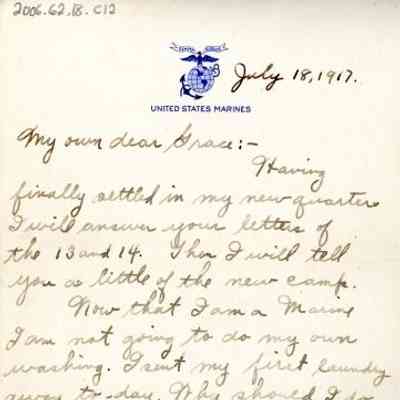 2006.62.18.C12
SEMPER FIDELIS
July 18, 1917.
UNITED STATES MARINES
My own dear Grace:-
Having
finally settled in my new quarters
I will answer your letters of
the 13 and 14. Then I will tell
you a little of the new camp.
Now that I am a Marine
I am not going to do my own
washing. I sent my first laundry
away to-day. Why should I do